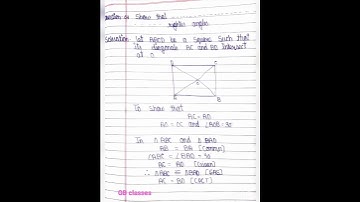 Question 4 Show that
right angles
Solution let ABCD be a Square Such that
its diagonals AC and BD intersect
at O.
B
To show that
AC = BD
AO = OC and ∠AOB = 90
In △ABC and △BAD
AB = BA [Common]
∠ABC = ∠BAD = 90
BC = AD [Given]
∴ △ABC ≅ △BAD [SAS]
AC = BD [CPCT]
GB classes